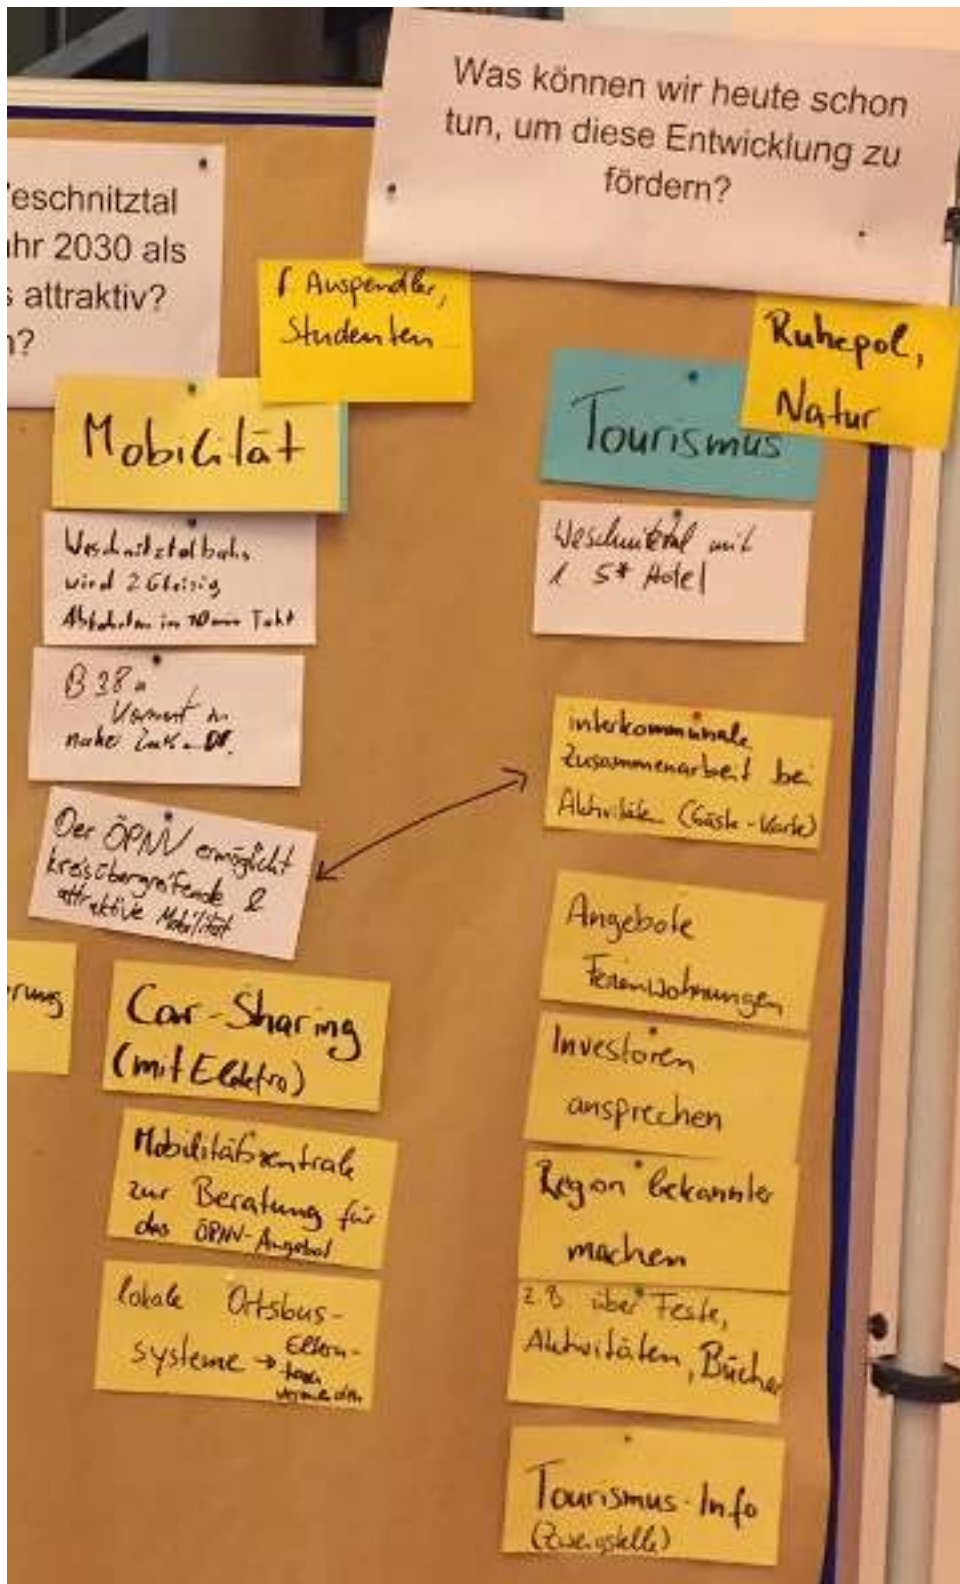 Was können wir heute schon
tun, um diese Entwicklung zu
fördern?
eschnitztal
hr 2030 als
s attraktiv?
?
Auspendler,
Studenten
Ruhepol,
Natur
Mobilität
Weschnitztalbahn
wird 2 Gleisig
Abfahrten im 10 min Takt
B 38a
kommt in
naher
Der ÖPNV ermöglicht
kreisübergreifende &
attraktive Mobilität
rung
Car-Sharing
(mit Elektro)
Mobilitätszentrale
zur Beratung für
das ÖPNV-Angebot
lokale Ortsbus-
systeme → Eltern-
taxen
vermeiden
Tourismus
Weschnitztal mit
1 5* Hotel
interkommunale
Zusammenarbeit bei
Aktivitäten (Gäste-Karte)
Angebote
Ferienwohnungen
Investoren
ansprechen
Region bekannter
machen
z.B über Feste,
Aktivitäten, Bücher
Tourismus-Info
(Zweigstelle)